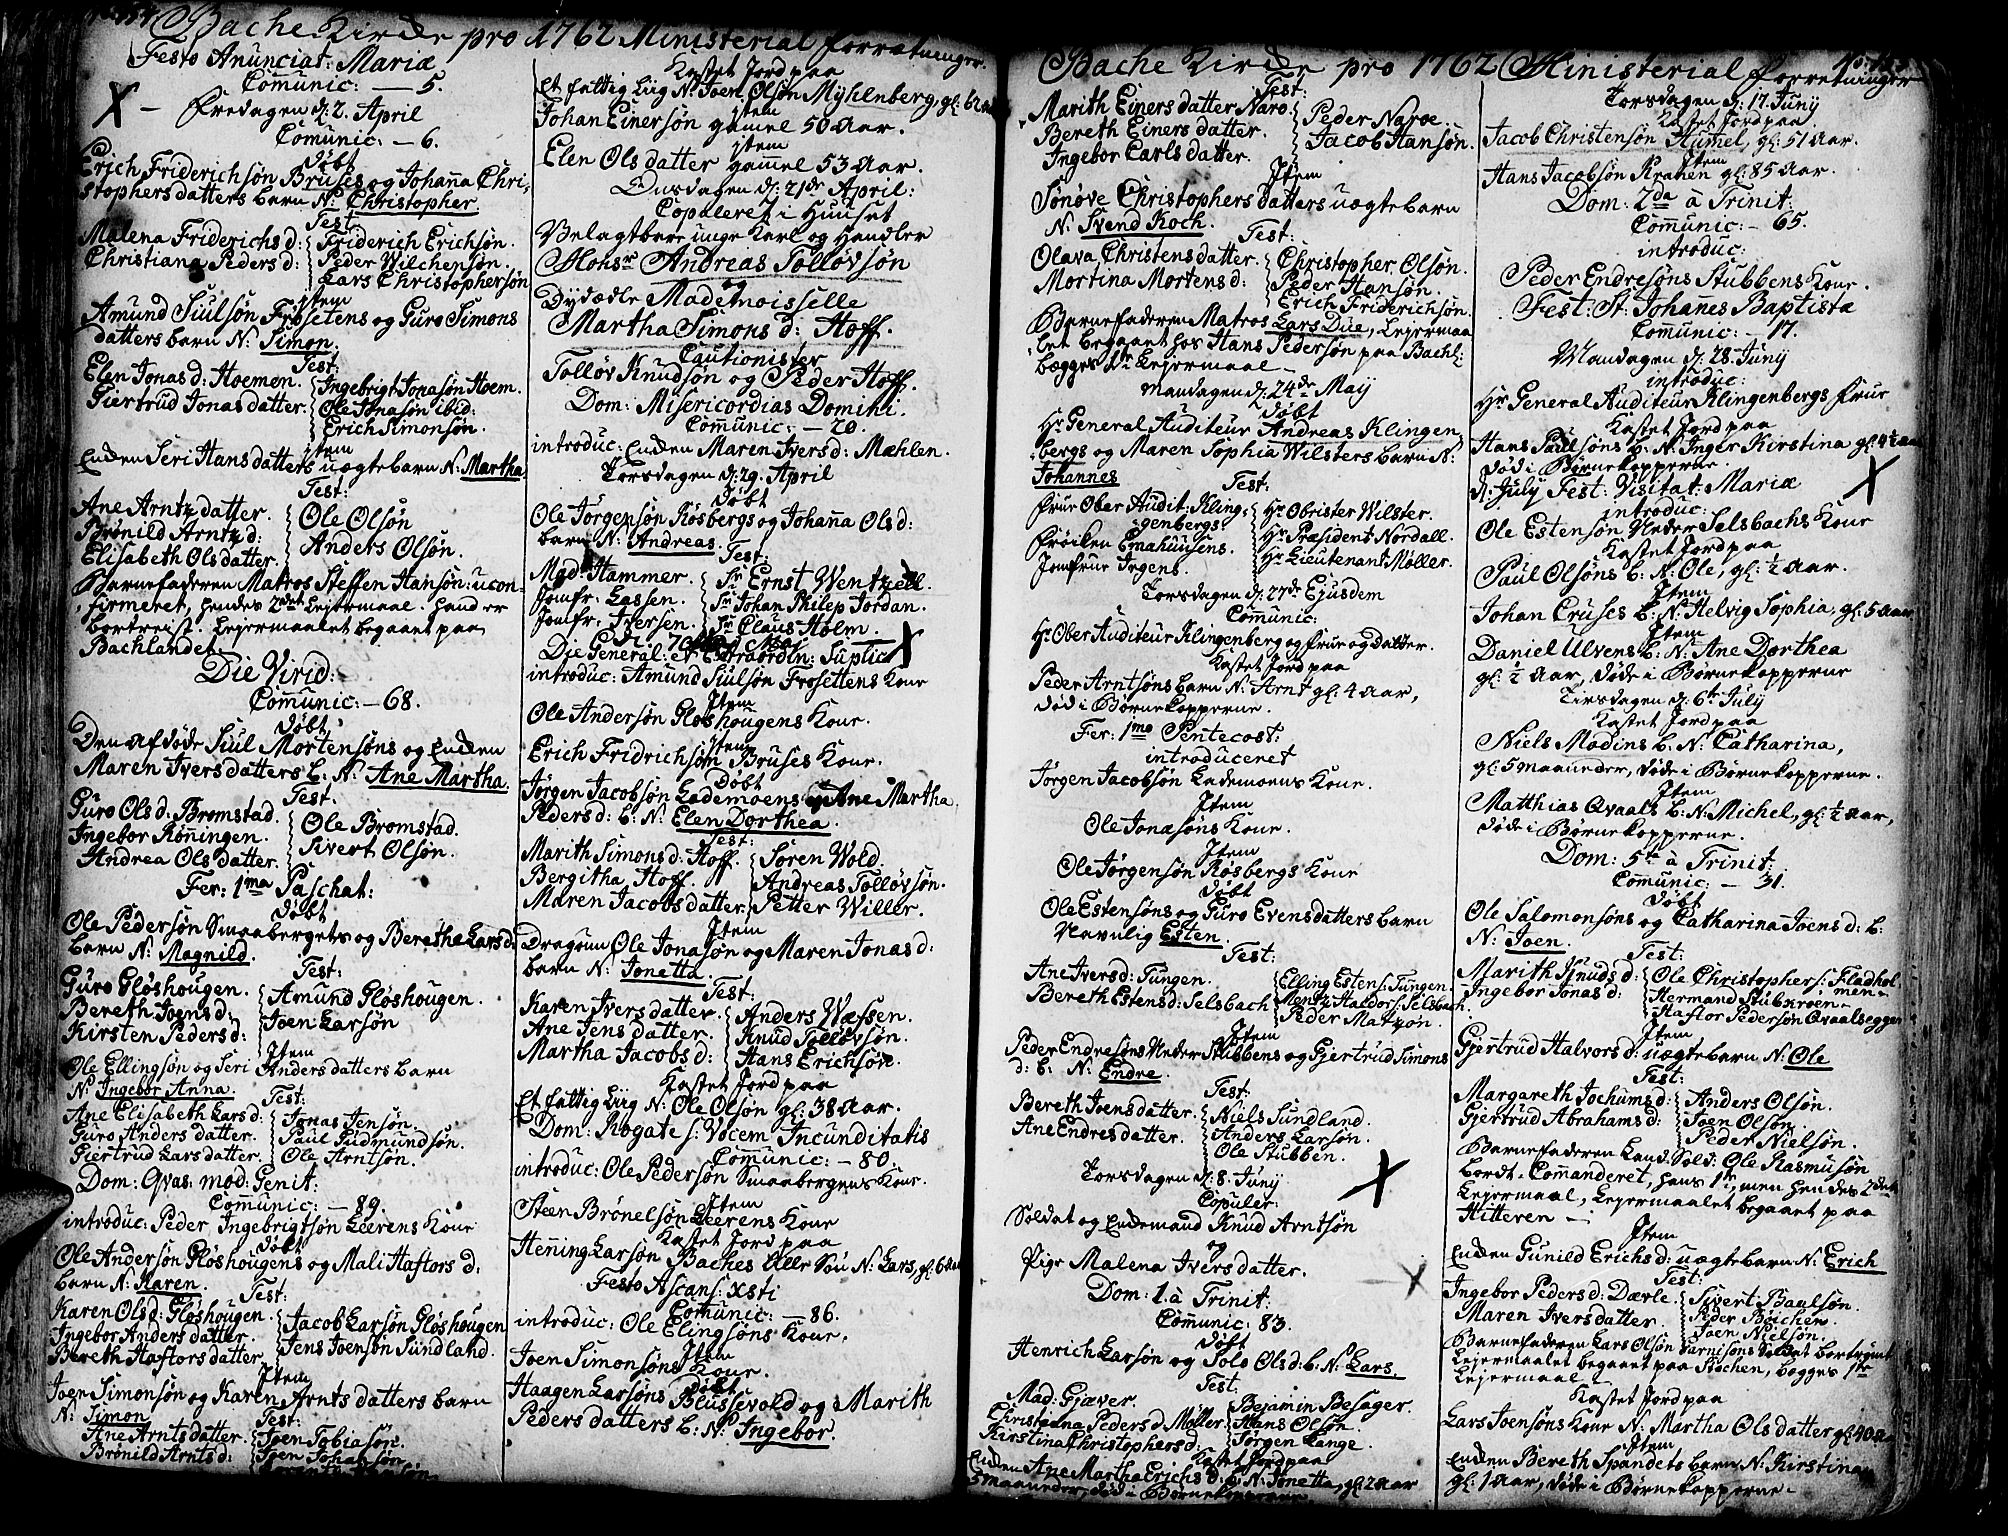 Bache Kirche pro 1762 Ministerial forretninger.
Festo Anunciat: Mariæ
Comunic: — 5.
X — Fredagen d: 2. April
Comunic: — 6.
Döbt
Erich Friderichsön Bruses og Johana Chri,
stophersdatters barn N: Christopher.
Test
Malena Friderichs d: Friderich Erichsön.
Christiana Peders d: Peder Wilchensön.
Lars Christophersön
Item
Amund Siulsön Frosetens og Guro Simons
datters barn N: Simon.
Test:
Elen Jonas d: Hoemon. Ingebrigt Jonasön Hoem.
Giertrud Jonas datter. Ole Jonasön ibid:
Erich Simonsön.
Item
Enken Seri Hansdatters uægtebarn N: Martha.
Test:
Ane Arntz datter. Ole Olsön
Brönild Arntz d: Anders Olsön.
Elisabeth Ols datter.
Barnefaderen Matros Steffen Hansön: ucon,
firmeret, hendes 2det Lejermaal. hand er
bortreist. Lejermaalet begaaet paa
Bachlandet.
Die Virid:
Comunic: — 68.
Döbt
Den afdöde Siul Mortensöns og Enken
Maren Iversdatters b: N: Ane Martha.
Test.
Guro Ols d: Bromstad. Ole Bromstad.
Ingebor Röningen. Sivert Olsön.
Andrea Ols datter.
Fer: 1ma Paschat:
Döbt
Ole Pedersön Smaabergets og Berethe Lars d:
barn N: Magnild.
Test:
Guro Glöshougen. Amund Glöshougen.
Bereth Joens d: Joen Larsön
Kirsten Peders d:
Item
Ole Ellingsön og Seri Andersdatters barn
N: Ingebor Anna.
Test:
Ane Elisabeth Lars d: Jonas Jensön.
Guro Anders datter. Paul Gudmundsön.
Giertrud Lars datter. Ole Arntsön.
Dom: Qvas: mod: Genit:
Comunic: — 89.
introduc: Peder Ingebrigtsön Leerens Kone
Döbt
Ole Andersön Glöshougens og Mali Haftors d:
barn N: Karen.
Test:
Karen Ols d: Glöshougen. Jacob Larsön Glöshougen
Ingebor Anders datter. Jens Joensön Sundland.
Bereth Haftors datter
Item
Joen Simonsön og Karen Arnts datters barn
N: Simon
Test:
Ane Arnts datter. Joen Tobiasön.
Brönild Arnts d: Joen Johansön
Kastet Jord paa
Et fattig Liig N: Joen Olsön Myhlenberg, gl: 62 aar
Item
Johan Einersön gamel 50 aar.
Item
Elen Ols datter gamel 53 aar.
Onsdagen d: 21de April:
Copuleret i Huuset
Velagtbare unge Karl og Handler
Mohsr Andreas Tollövsön
og
Dydædle Mademoisselle
Martha Simons d: Hoff.
Cautionister
Tollöv Knudsön og Peder Hoff.
Dom: Misericordias Domini.
Comunic: — 20.
introduc: Enken Maren Ivers d: Mæhlen.
Torsdagen d: 29. April
Döbt
Ole Jörgensön Rösbergs og Johana Ols d:
barn N: Andreas.
Test:
Mad: Hammer. Sr Ernst Wentzell.
Jomfr: Lassen. Sr Johan Philep Jordan.
Jomfr: Iversen. Sr Claus Holm.
Die General: et Extraordin: Suplic: X
introduc: Amund Siulsön Frosettens Kone
Item
Ole Andersön Glöshougens Kone.
Item
Erich Fridrichsön Bruses Kone.
Döbt
Jörgen Jacobsön Lademoens og Ane Martha
Peders d: b: N: Elen Dorthea.
Test:
Marith Simons d: Hoff. Sören Wold.
Bergitha Hoff. Andreas Tollövsön.
Maren Jacobs datter. Petter Willer.
Item
Dragoun Ole Jonasön og Maren Jonas d:
barn N: Jonetta.
Test:
Karen Ivers datter. Anders Wæssen.
Ane Jens datter. Knud Tollövsön.
Martha Jacobs d: Hans Erichsön.
Kastet Jord paa
Et fattig Liig N: Ole Olsön gl: 38 aar.
Dom: Rogate s: Vocem Incunditatis
Comunic: — 80.
introduc: Ole Pedersön Smaabergens Kone.
Item
Steen Brönelsön Leerens Kone
Kastet Jord paa
Hening Larsön Baches Uller Sön N: Lars,
Festo Ascans: xsti
Comunic: — 86.
introduc: Ole Elingsöns Kone.
Item
Joen Simonsöns Kone.
Döbt
Haagen Larsöns Blussevold og Marith
Peders datters b: N: Ingebor.
Bache Kirche pro 1762 Ministerial forretninger
Test:
Marith Einers datter Naro. Peder Naroe.
Bereth Einers datter. Jacob Hansön.
Ingebor Carls datter.
Item
Sönöve Christophers datters uægtebarn
N: Svend Koch.
Test:
Olava Christens datter. Christopher Olsön.
Mortina Mortens d: Peder Hansön.
Erich Friderichsön.
Barnefaderen Matros Lars Due, Lejermaa
let begaaet hos Hans Pedersön paa Bachl:
begges 1te Lejermaal —
Mandagen d: 24de Maij
Döbt
Hr General Auditeur Andreas Klingen
bergs og Maren Sophia Wilsters barn N:
Johannes
Test:
Frue Ober Audit: Kling, Hr Obrister Wilster.
genbergs Hr Præsident Nordall.
Fröiken Emahuusens. Hr Lieutenant Möller.
Jomfrue Irgens.
Torsdagen d: 27de Ejusdem
Comunic:
Hr Ober Auditeur Klingenberg og Frue og datter.
Kastet Jord paa
Peder Arntsöns barn N: Arnt gl: 4 aar,
död i Börnekopperne.
Fer: 1mo Pentecost:
introduceret
Jörgen Jacobsön Lademoens Kone.
Item
Ole Jonæsöns Kone.
Item
Ole Jörgensön Rösbergs Kone
Döbt
Ole Estensöns og Guro Evensdatters barn
Navnlig Esten.
Test:
Ane Ivers d: Tungen. Elling Estens: Tungen
Bereth Estens d: Selsbach Mentz Haldors: Selsbach
Peder Matzön.
Item
Peder Endresöns Neder Stubbens og Gjertrud Simons
d: b: N: Endre.
Test:
Bereth Joens datter. Niels Sundland.
Ane Endres datter. Anders Larsön.
Ole Stubben.
Torsdagen d: 8. Junij X
Copuler:
Soldat og Enkemand Knud Arntsön
og
Pige Malena Ivers datter. — X
Dom: 1. à Trinit:
Comunic: 83.
Döbt
Henrich Larsön og Solo Ols d: b: N: Lars.
Test:
Mad: Gjæver. Bejamin Besager.
Christianna Peders d: Möller. Hans Olsön.
Kirstina Christophers d: Jörgen Lange.
Kastet Jord paa
Enken Ane Martha Erichs d: b: N: Jonetta, gl: 2 aar
5 maaneder, död i Börnekopperne
Torsdagen d: 17. Junij
Kastet Jord paa
Jacob Christensön Humel, gl: 51 aar.
Item
Hans Jacobsön Krahen gl: 85 aar.
Dom: 2da à Trinit:
Comunic: — 65.
introduc:
Peder Endresöns Stubbens Kone.
Fest: St: Johanes Baptistæ
Comunic: — 17.
Mandagen d: 28. Junij
introduc:
Hr General Auditeur Klingenbergs Frue
Kastet Jord paa
Hans Paulsöns b: N: Inger Kirstina gl: 4½ aar
död i Börnekopperne.
d: July Fest: Visitat: Mariæ X
introduc:
Ole Estensön Neder Selsbachs Kone
Kastet Jord paa
Paul Olsöns b: N: Ole, gl: ½ aar.
Item
Johan Cruses b: N: Helvig Sophia, gl: 5 aar
Item
Daniel Ulvens b: N: Ane Dorthea
gl: ½ aar, döde i Börnekopperne
Tirsdagen d: 6te July
Kastet Jord paa
Niels Modins b: N: Catharina,
gl: 5 maaneder, döde i Börnekopperne.
Item
Matthias Qvaals b: N: Michel, gl: ½ aar,
döde i Börnekopperne.
Dom: 5te à Trinit:
Comunic: — 31.
Döbt
Ole Salomonsöns og Catharina Joens d: b:
N: Joen.
Test:
Marith Knuds d: Ole Christophers: Fladhol
Ingebor Jonas d: men.
Hermand Stubkroen.
Haftor Pedersön Qvaalseggen
Item
Gjertrud Halvors d: uægtebarn N: Ole
Test:
Margareth Jochums d: Anders Olsön.
Gjertrud Abrahams d: Joen Olsön
Peder Nielsön.
Barnefaderen Land. Sold: Ole Rasmusön
bordt. Comanderet, hans 1te, men hendes 2det
Lejermaal, Lejermaalet begaaet paa
Hitteren —
Item
Enken Gunild Erichs d: uægtebarn N: Erich
Test:
Ingebor Peders d: Dærle. Sivert Paulsön.
Maren Ivers datter. Peder Böichen.
Joen Nielsön.
Barnefaderen Lars Olsön Garnisons Soldat bortrömt
Lejermaalet begaaet paa Stochen, begges 1te
Lejermaal
Kastet Jord paa
Lars Joensöns Kone N: Martha Ols datter gl: 40 aar
Item
Enken Bereth Spandets barn N: Kirstina
gl: 1 aar, döde i Börnekopperne —